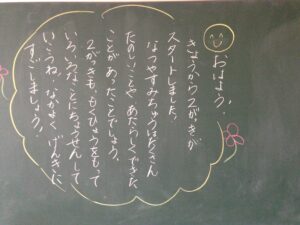 おはよう！
きょうから2がっきが
スタートしました。
なつやすみちゅうはたくさん
たのしいことや、あたらしくできた
ことがあったことでしょう。
2がっきも、もくひょうをもって
いろいろなことにちょうせんして
いこうね。なかよく、げんきに
すごしましょう！